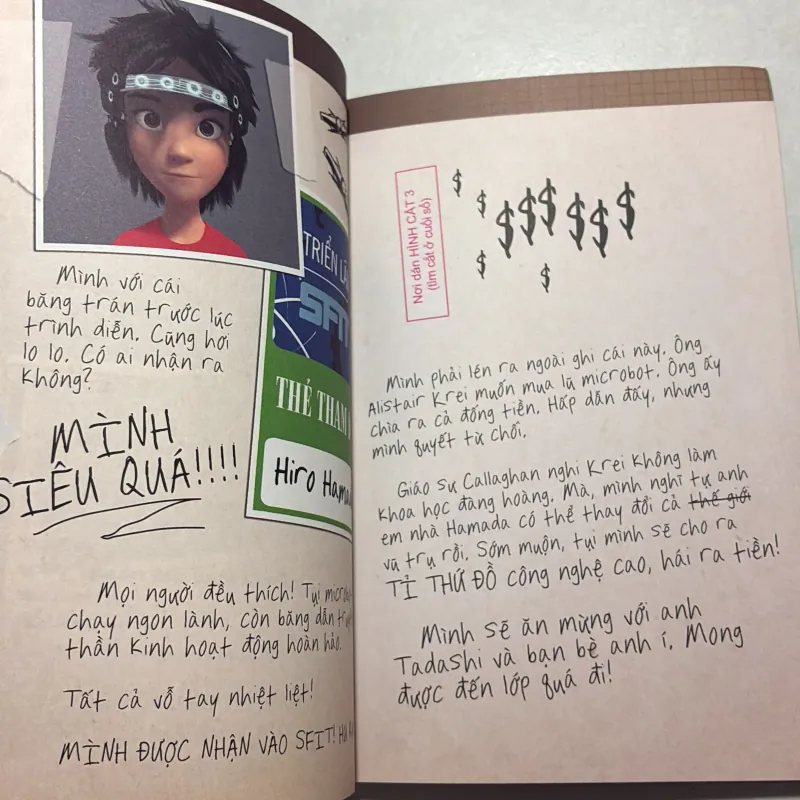 Mình với cái
băng trán trước lúc
trình diễn. Cũng hơi
lo lo. Có ai nhận ra
không?
MÌNH
SIÊU QUÁ!!!!
TRIỂN
SFIT
THẺ THAM
Hiro Hamada
Mọi người đều thích! Tụi
chạy ngon lành, còn băng dẫn
thần kinh hoạt động hoàn hảo.
Tất cả vỗ tay nhiệt liệt!
MÌNH ĐƯỢC NHẬN VÀO SFIT!
Nơi dán HÌNH CẮT 3
(tìm cắt ở cuối sổ)
$ $ $ $ $ $ $ $
$ $
Mình phải lén ra ngoài ghi cái này. Ông
Alistair Krei muốn mua lũ microbot. Ông ấy
chìa ra cả đống tiền. Hấp dẫn đấy, nhưng
mình quyết từ chối.
Giáo sư Callaghan nghi Krei không làm
khoa học đàng hoàng. Mà, mình nghĩ tự anh
em nhà Hamada có thể thay đổi cả thế giới
vũ trụ rồi. Sớm muộn, tụi mình sẽ cho ra
TỈ THỨ ĐỒ công nghệ cao, hái ra tiền!
Mình sẽ ăn mừng với anh
Tadashi và bạn bè anh í. Mong
được đến lớp quá đi!